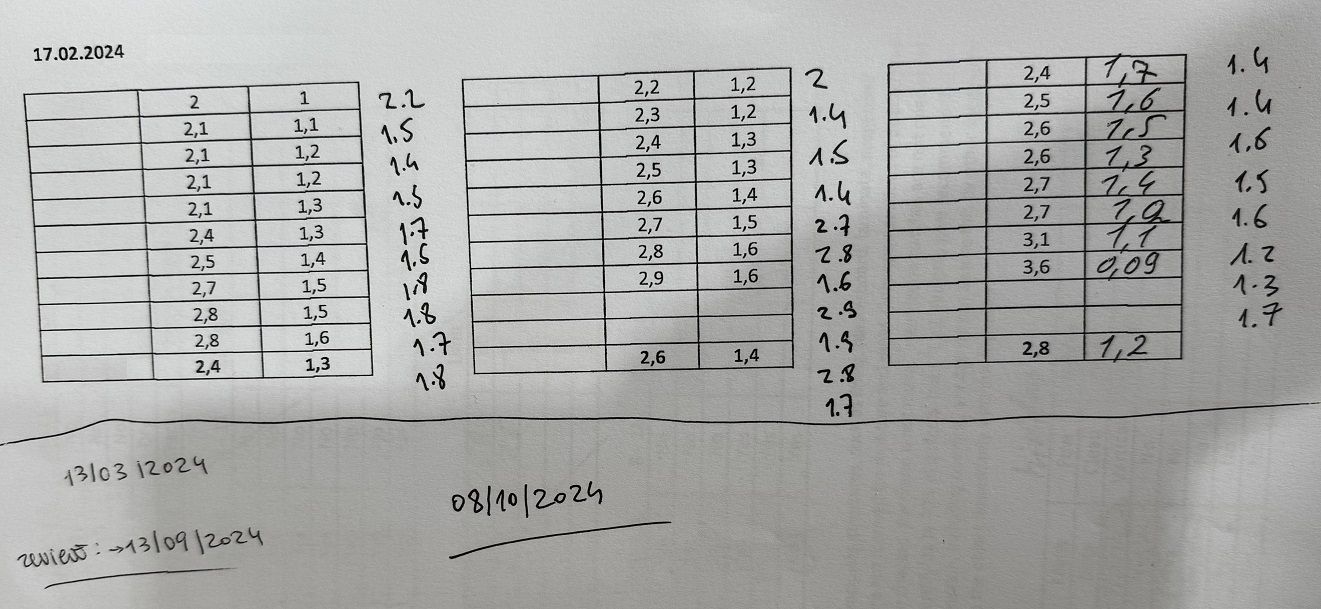 17.02.2024
2 1
2,1 1,1
2,1 1,2
2,1 1,2
2,1 1,3
2,4 1,3
2,5 1,4
2,7 1,5
2,8 1,5
2,8 1,6
2,4 1,3
2.2
1.5
1.4
1.5
1.7
1.5
1.8
1.8
1.7
1.8
2,2 1,2
2,3 1,2
2,4 1,3
2,5 1,3
2,6 1,4
2,7 1,5
2,8 1,6
2,9 1,6
2,6 1,4
2
1.4
1.5
1.4
2.7
2.8
1.6
2.9
1.9
2.8
1.7
2,4 1,7
2,5 1,6
2,6 1,5
2,6 1,3
2,7 1,4
2,7
3,1 1,1
3,6 0,09
2,8 1,2
1.4
1.4
1.6
1.5
1.6
1.2
1.3
1.7
13/03/2024
review: →13/09/2024
08/10/2024